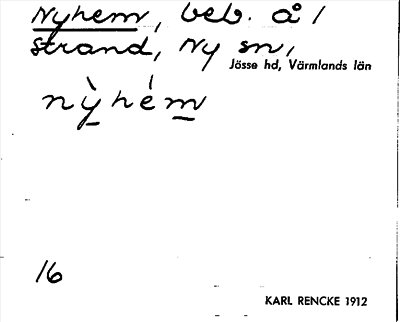 Nyhem, beb. å /
strand, Ny sn,
Jösse hd, Värmlands län
nỳhém
16
KARL RENCKE 1912